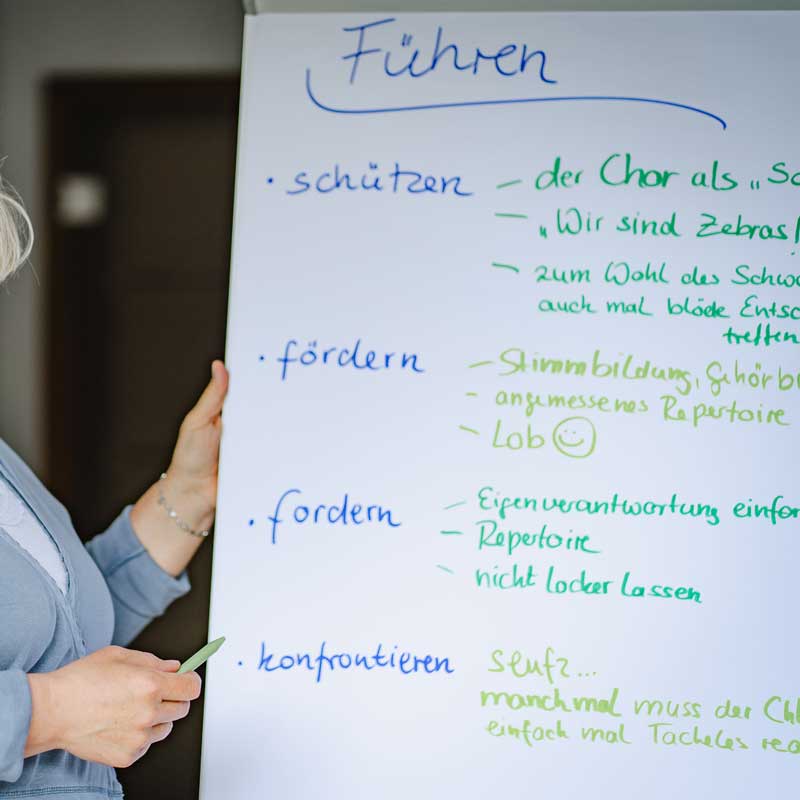 Führen
· schützen – der Chor als „Sc
– „Wir sind Zebras!
– zum Wohl des Schwa
auch mal blöde Entsc
treffen
· fördern – Stimmbildung, Gehörbi
- angemessenes Repertoire
– Lob ☺
· fordern – Eigenverantwortung einfor
– Repertoire
– nicht locker lassen
· konfrontieren seufz...
manchmal muss der Chl
einfach mal Tacheles rea